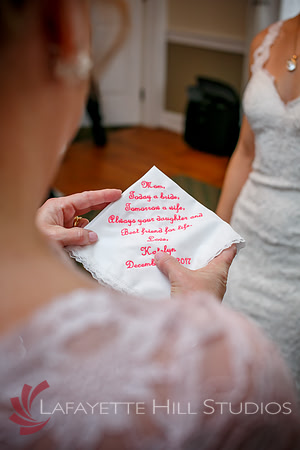 Mom,
Today a bride,
Tomorrow a wife,
Always your daughter and
Best friend for life.
Love,
December 2017
LAFAYETTE HILL STUDIOS